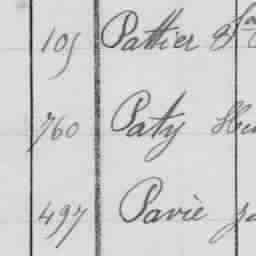 105 Pattier
760 Paty
497 Pavie